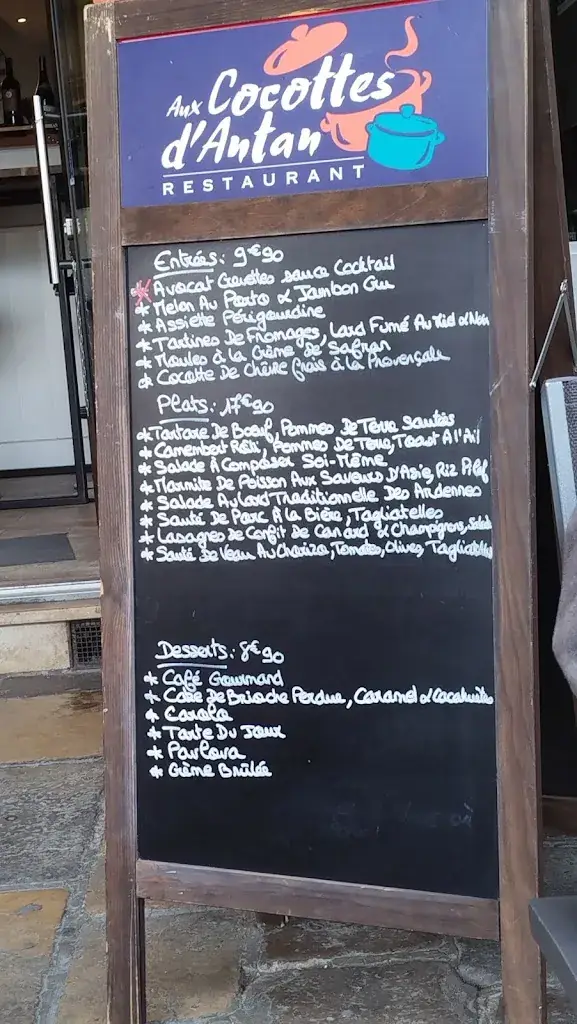 Aux Cocottes
d'Antan
RESTAURANT
Entrées: 9€90
* Avocat Crevettes sauce Cocktail
* Melon Au Porto & Jambon Cru
* Assiette Périgourdine
* Tartines De Fromages, Lard Fumé Au Miel & Noix
* Moules à la Crème De Safran
* Cocotte De Chèvre frais à la Provençale
Plats: 17€90
* Tartare De Boeuf, Pommes De Terre Sautées
* Camembert Rôti, Pommes De Terre, Toast A l'Ail
* Salade A Composer Soi-Même
* Marmite De Poisson Aux Saveurs D'Asie, Riz Pilaf
* Salade Au Lard Traditionnelle Des Ardennes
* Sauté De Porc A la Bière, Tagliatelles
* Lasagnes De Confit De Canard & Champignons, Salade
* Sauté De Veau Au Chorizo, Tomates, Olives, Tagliatelles
Desserts: 8€90
* Café Gourmand
* Cake De Brioche Perdue, Caramel & Cacahuètes
* Carola
* Tarte Du Jour
* Pavlova
* Crème Brûlée